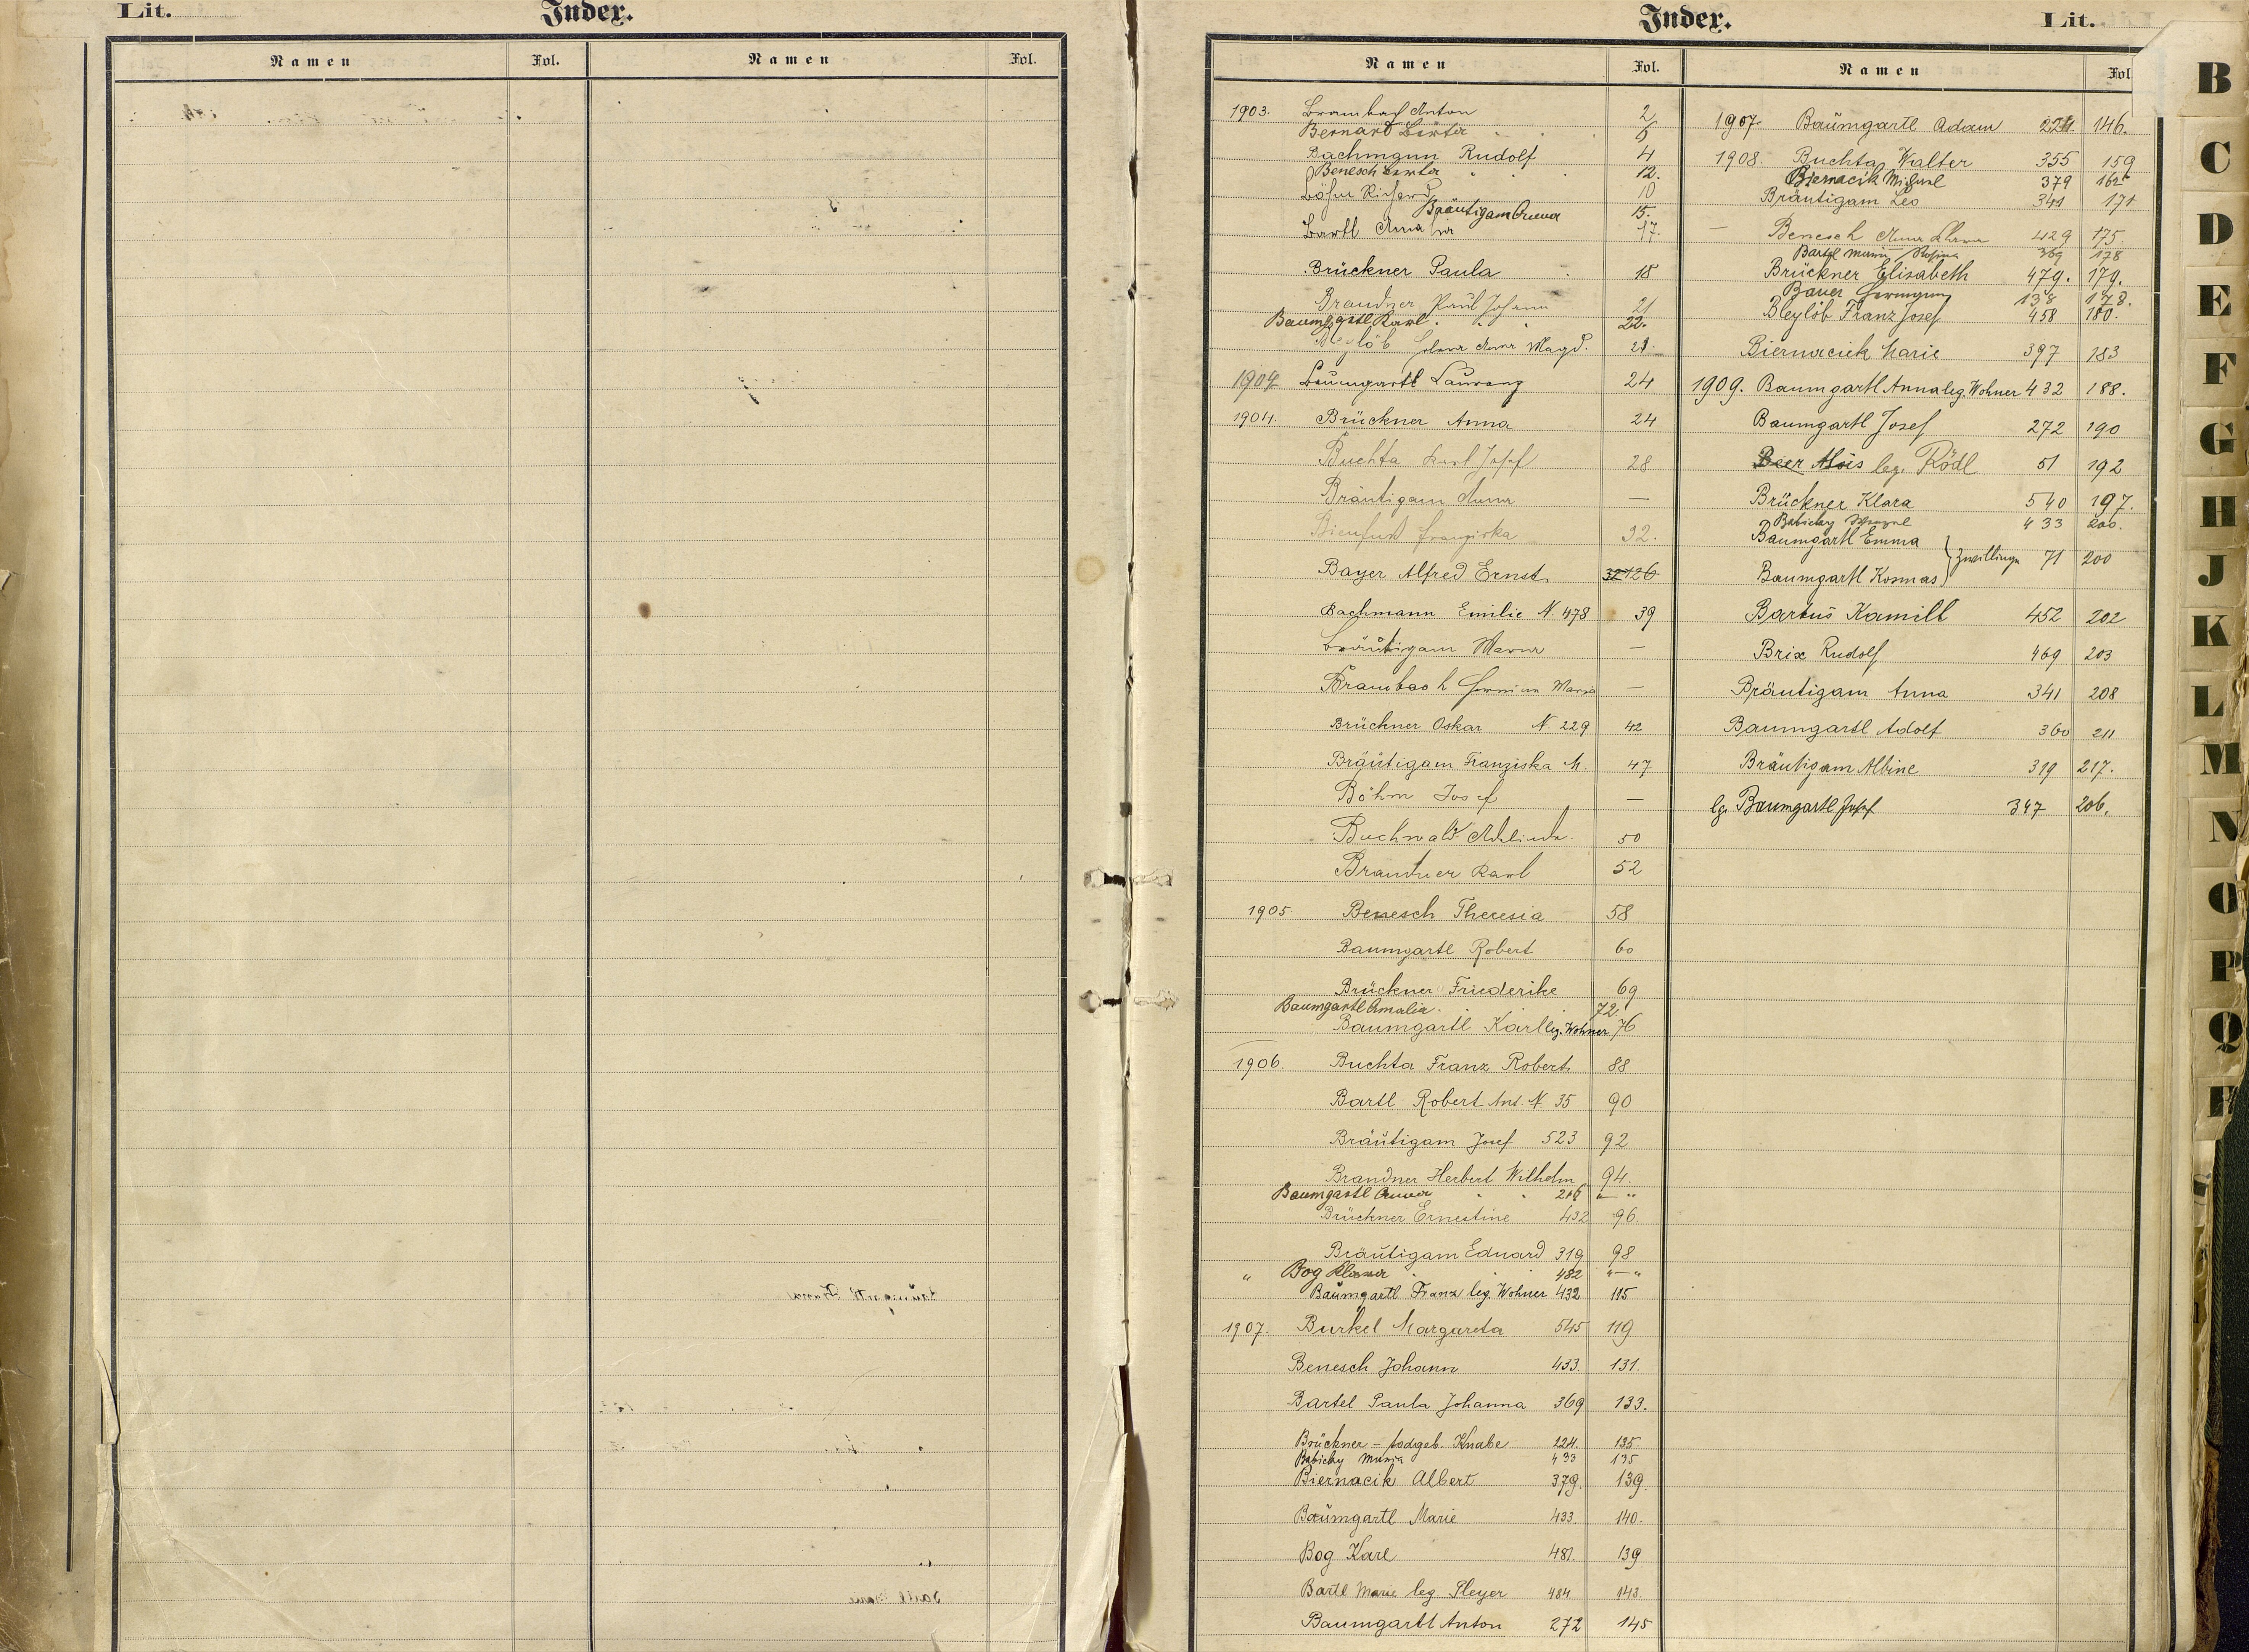 Lit.
Index.
Namen Fol. Namen Fol.
Index.
Lit.
Namen Fol.
1903. Brambach Anton 2
Bernard Berta 6
Bachmann Rudolf 4
Benesch Berta 12.
Böhm Richard 10
Bräutigam Anna 15.
Bartl Anna 17.
Brückner Paula 18
Brandner Paul Johann 21
Baumgartl Karl 22.
Anna Magd. 21
1904 Baumgartl Laurenz 24
1904. Brückner Anna 24
Buchta Karl Josef 28
Bräutigam Anna —
Franziska 32.
Bayer Alfred Ernst 32 126
Bachmann Emilie N. 478 39
Bräutigam Maria —
Brambach Hermine Maria —
Brückner Oskar N. 229 42
Bräutigam Franziska M. 47
Böhm Josef —
Buchwald 50
Brandner Karl 52
1905. Benesch Theresia 58
Baumgartl Robert 60
Brückner Friederike 69
Baumgartl Amalia 72.
Baumgartl Karl leg. Wohner 76
1906. Buchta Franz Robert 88
Bartl Robert Ant. N 35 90
Bräutigam Josef 523 92
Brandner Herbert Wilhelm 94.
Baumgartl Anna 216 " — "
Brückner Ernestine 432 96.
Bräutigam Eduard 319 98
" Bog 482 " — "
Baumgartl Franz leg. Wohner 432 115
1907. Burkel Margareta 545 119
Benesch Johann 433. 131.
Bartel Paula Johanna 369 133.
Brückner – todgeb. Knabe 224. 135.
Babicky Maria 433 135
Biernacik Albert 379. 139.
Baumgartl Marie 433. 140.
Bog Karl 481. 139
Bartl Marie leg. Pleyer 484. 143.
Baumgartl Anton 272 145
Namen Fol
1907. Baumgartl Adam 224. 146.
1908. Buchta Walter 355 159
Biernacik Michael 379 162
Bräutigam Leo 341 171
— Benesch Anna 429 175
Bartl Maria Rosina 369 178
Brückner Elisabeth 479. 179.
Bauer Hermann 138 178.
Bleylöb Franz Josef 458 180.
Biernacik Marie 397 183
1909. Baumgartl Anna leg. Wohner 432 188.
Baumgartl Josef 272 190
Beier Alois leg. Rödl 51 192
Brückner Klara 540 197.
Babicky Wenzel 433 200.
Baumgartl Emma
Zwillinge 71 200
Baumgartl Kosmas
Bartuš Kamill 452 202
Brix Rudolf 469 203
Bräutigam Anna 341 208
Baumgartl Adolf 360 211
Bräutigam Albine 319 217.
lg. Baumgartl Josef 347 206.
B
C
D
E
F
G
H
J
K
L
M
N
O
P
Q